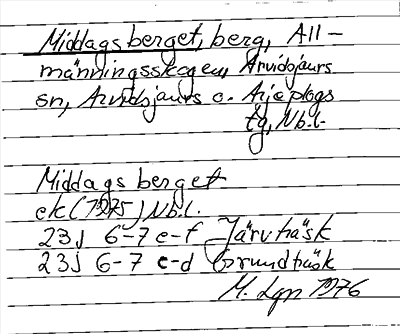 Middagsberget, berg, All-
männingsskogen, Arvidsjaurs
sn, Arvidsjaurs o. Arjeplogs
tg, Nb.l.
Middagsberget
ek (1975) Nb.l.
23J 6-7 e-f Järvträsk
23J 6-7 c-d Grundträsk
M. Lgn 1976